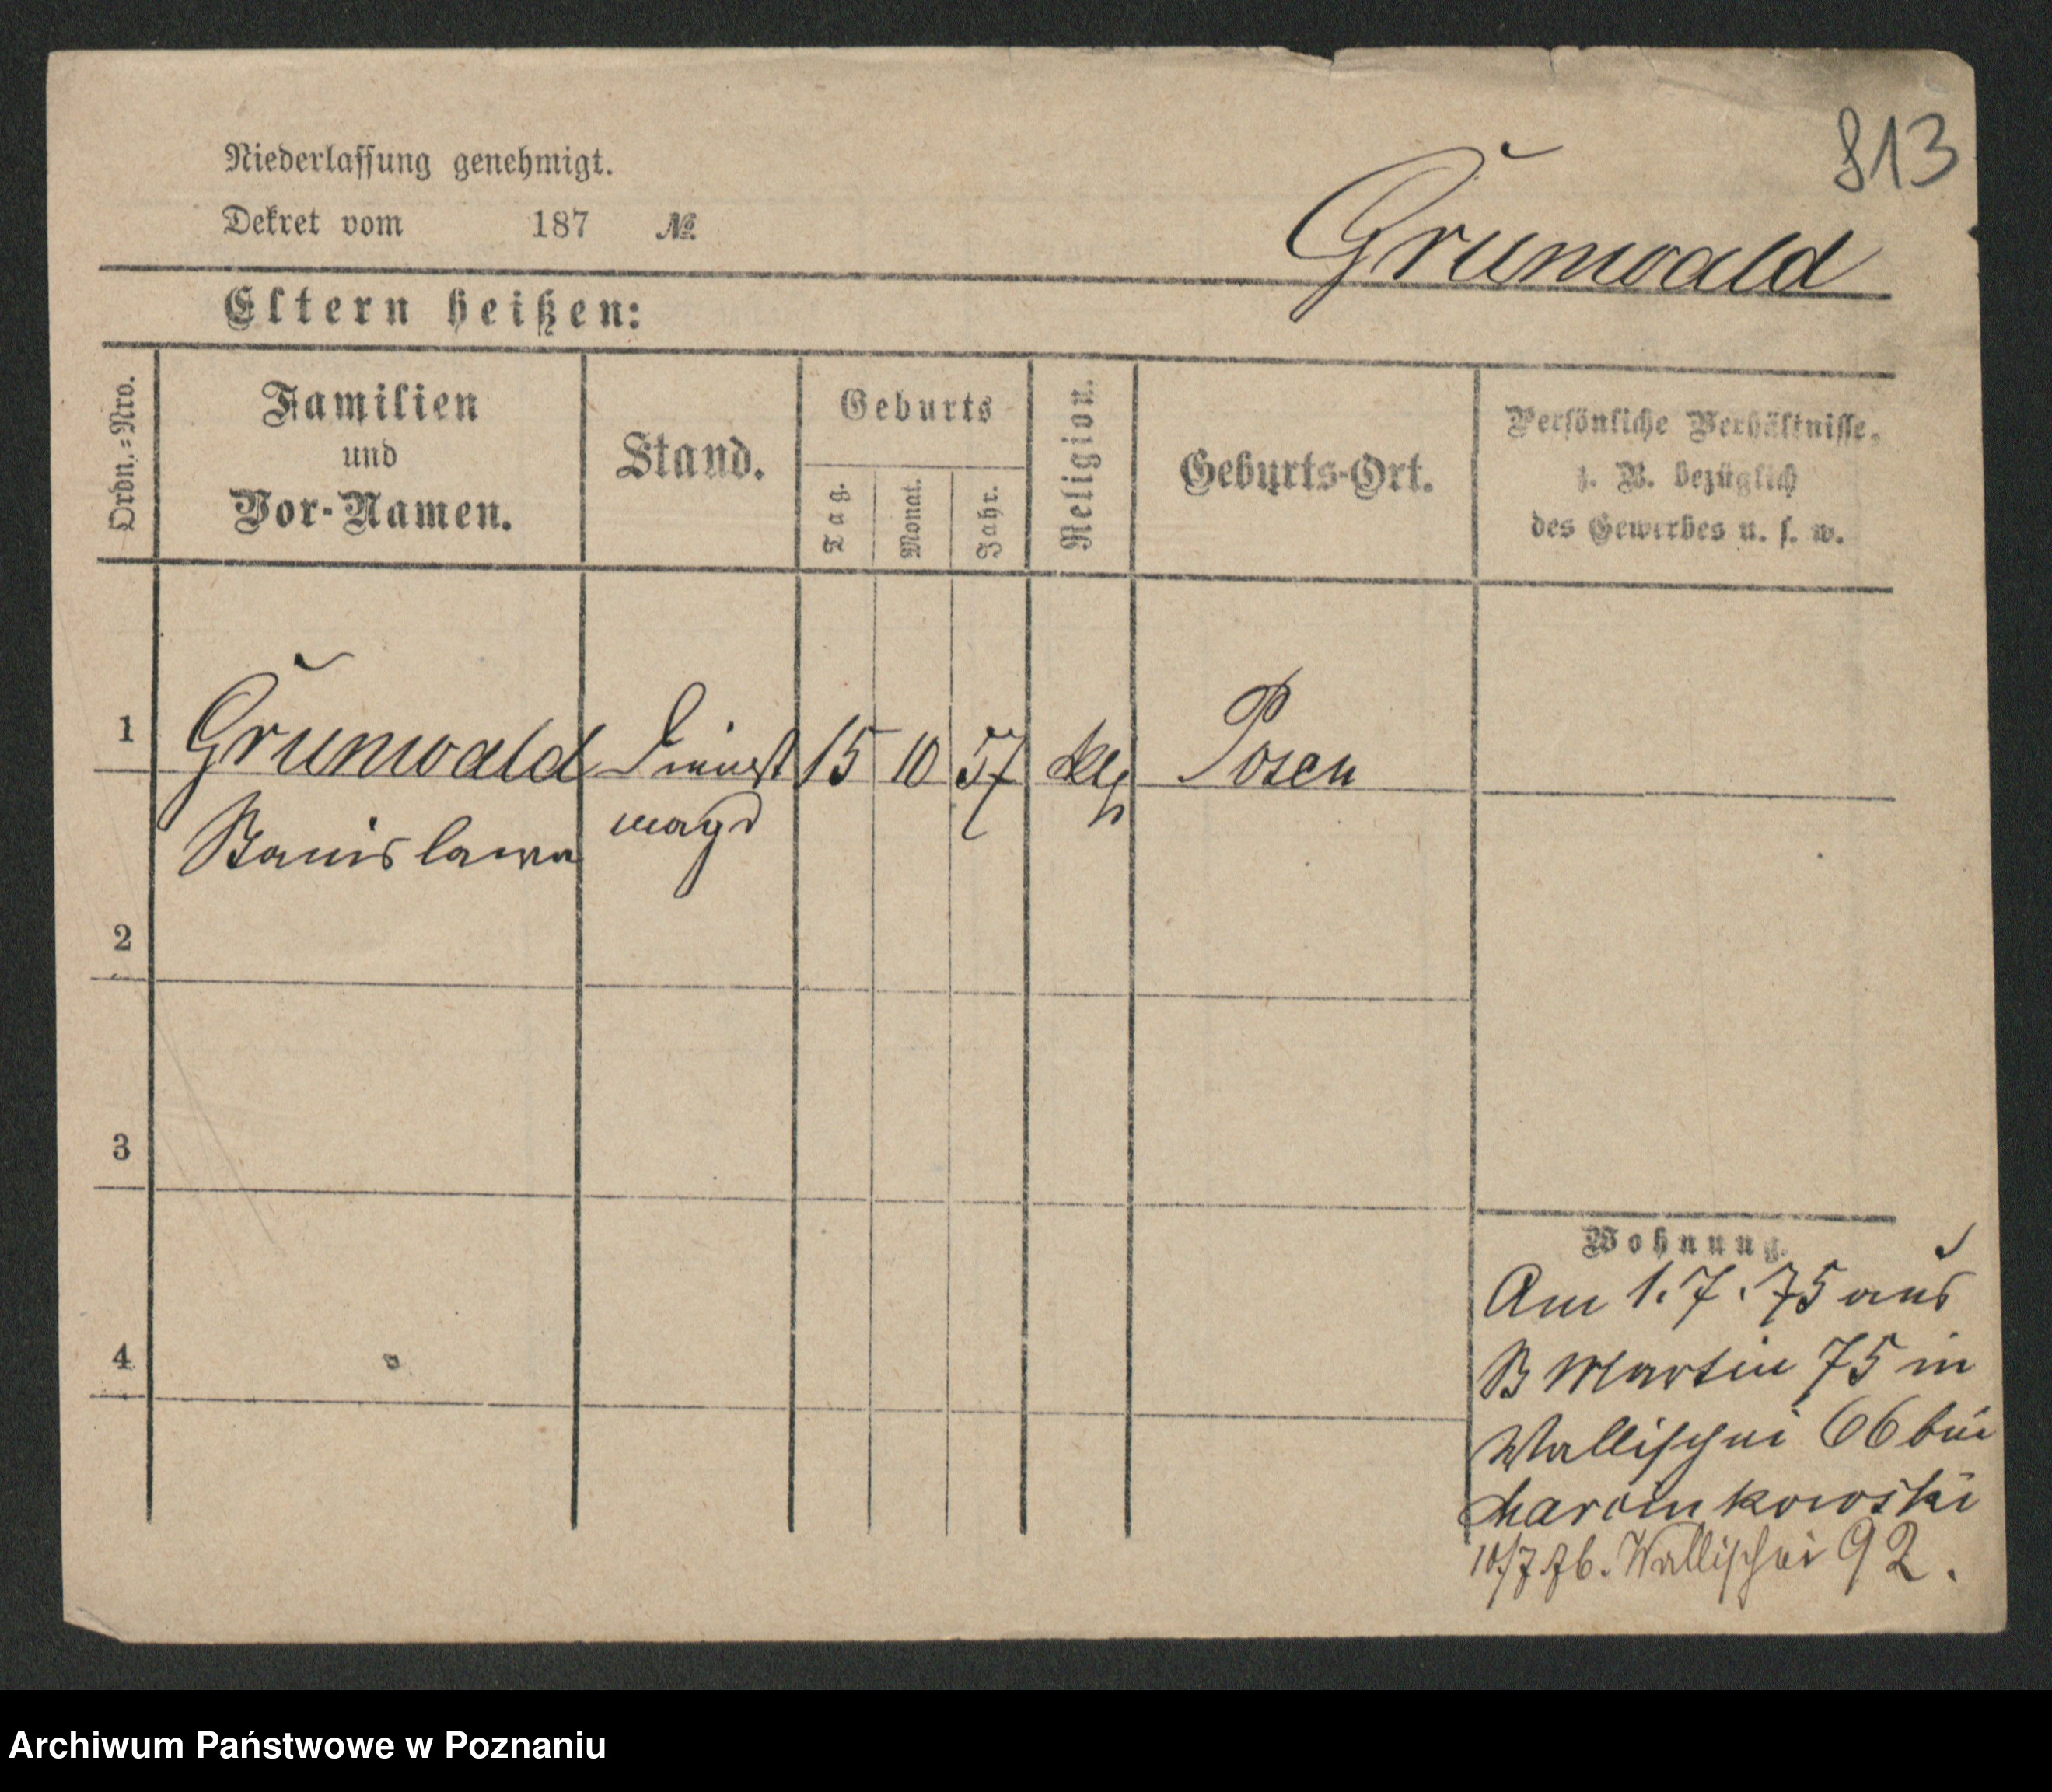 813
Niederlassung genehmigt.
Dekret vom 187 №.
Grunwald
Eltern heißen:
Ordn.=Nro.
Familien
und
Vor-Namen.
Stand.
Geburts
Tag.
Monat.
Jahr.
Religion.
Geburts-Ort.
Persönliche Verhältnisse,
z. B. bezüglich
des Gewerbes u. s. w.
1
Grunwald Dienst 15 10 57 Posen
Stanislawa magd
2
3
4
Wohnung.
Am 1.7.75 aus
St Martin 75 in
Wallischei 66 bei
Marcinkowski
10/7 76. Wallischei 92.
Archiwum Państwowe w Poznaniu